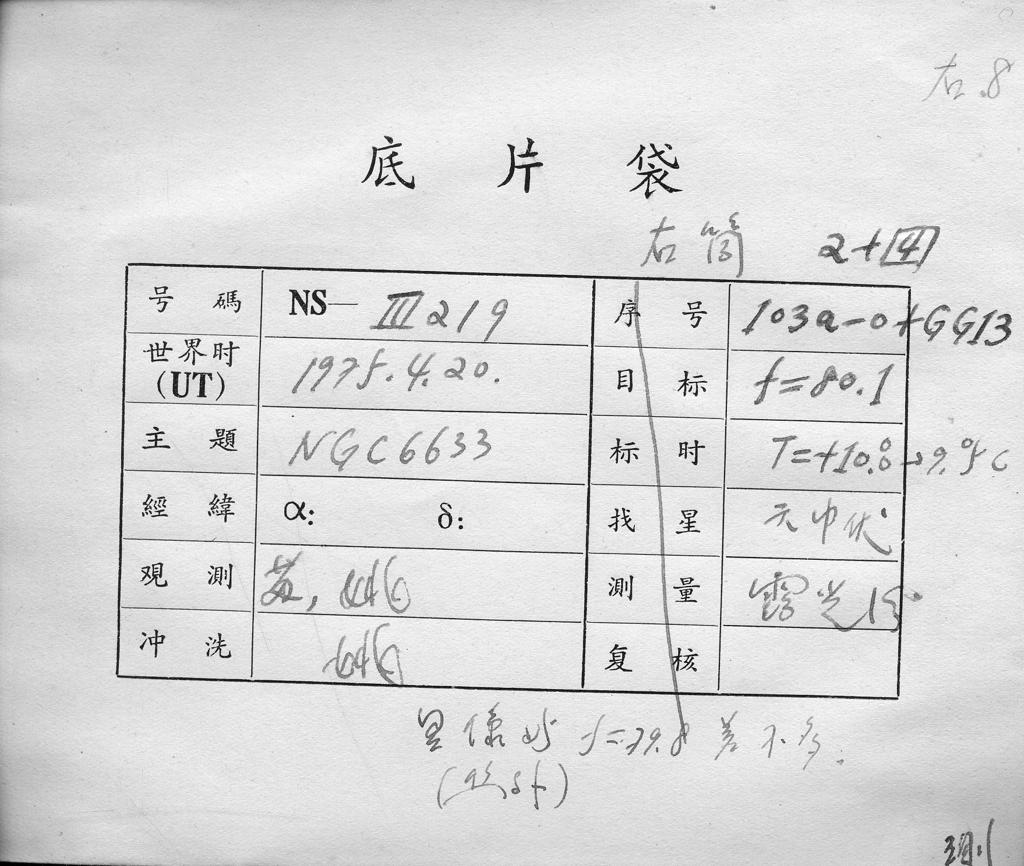 右.8
底片袋
右筒 2+四
号碼 NS— III219 序号 103a-0+GG13
世界时(UT) 1975.4.20. 目标 f=80.1
主題 NGC6633 标时 T=+10.°0→9.°5C
經緯 α: δ: 找星
观測 测量 露光
冲洗 复核
星像 f=79.8 差不多.